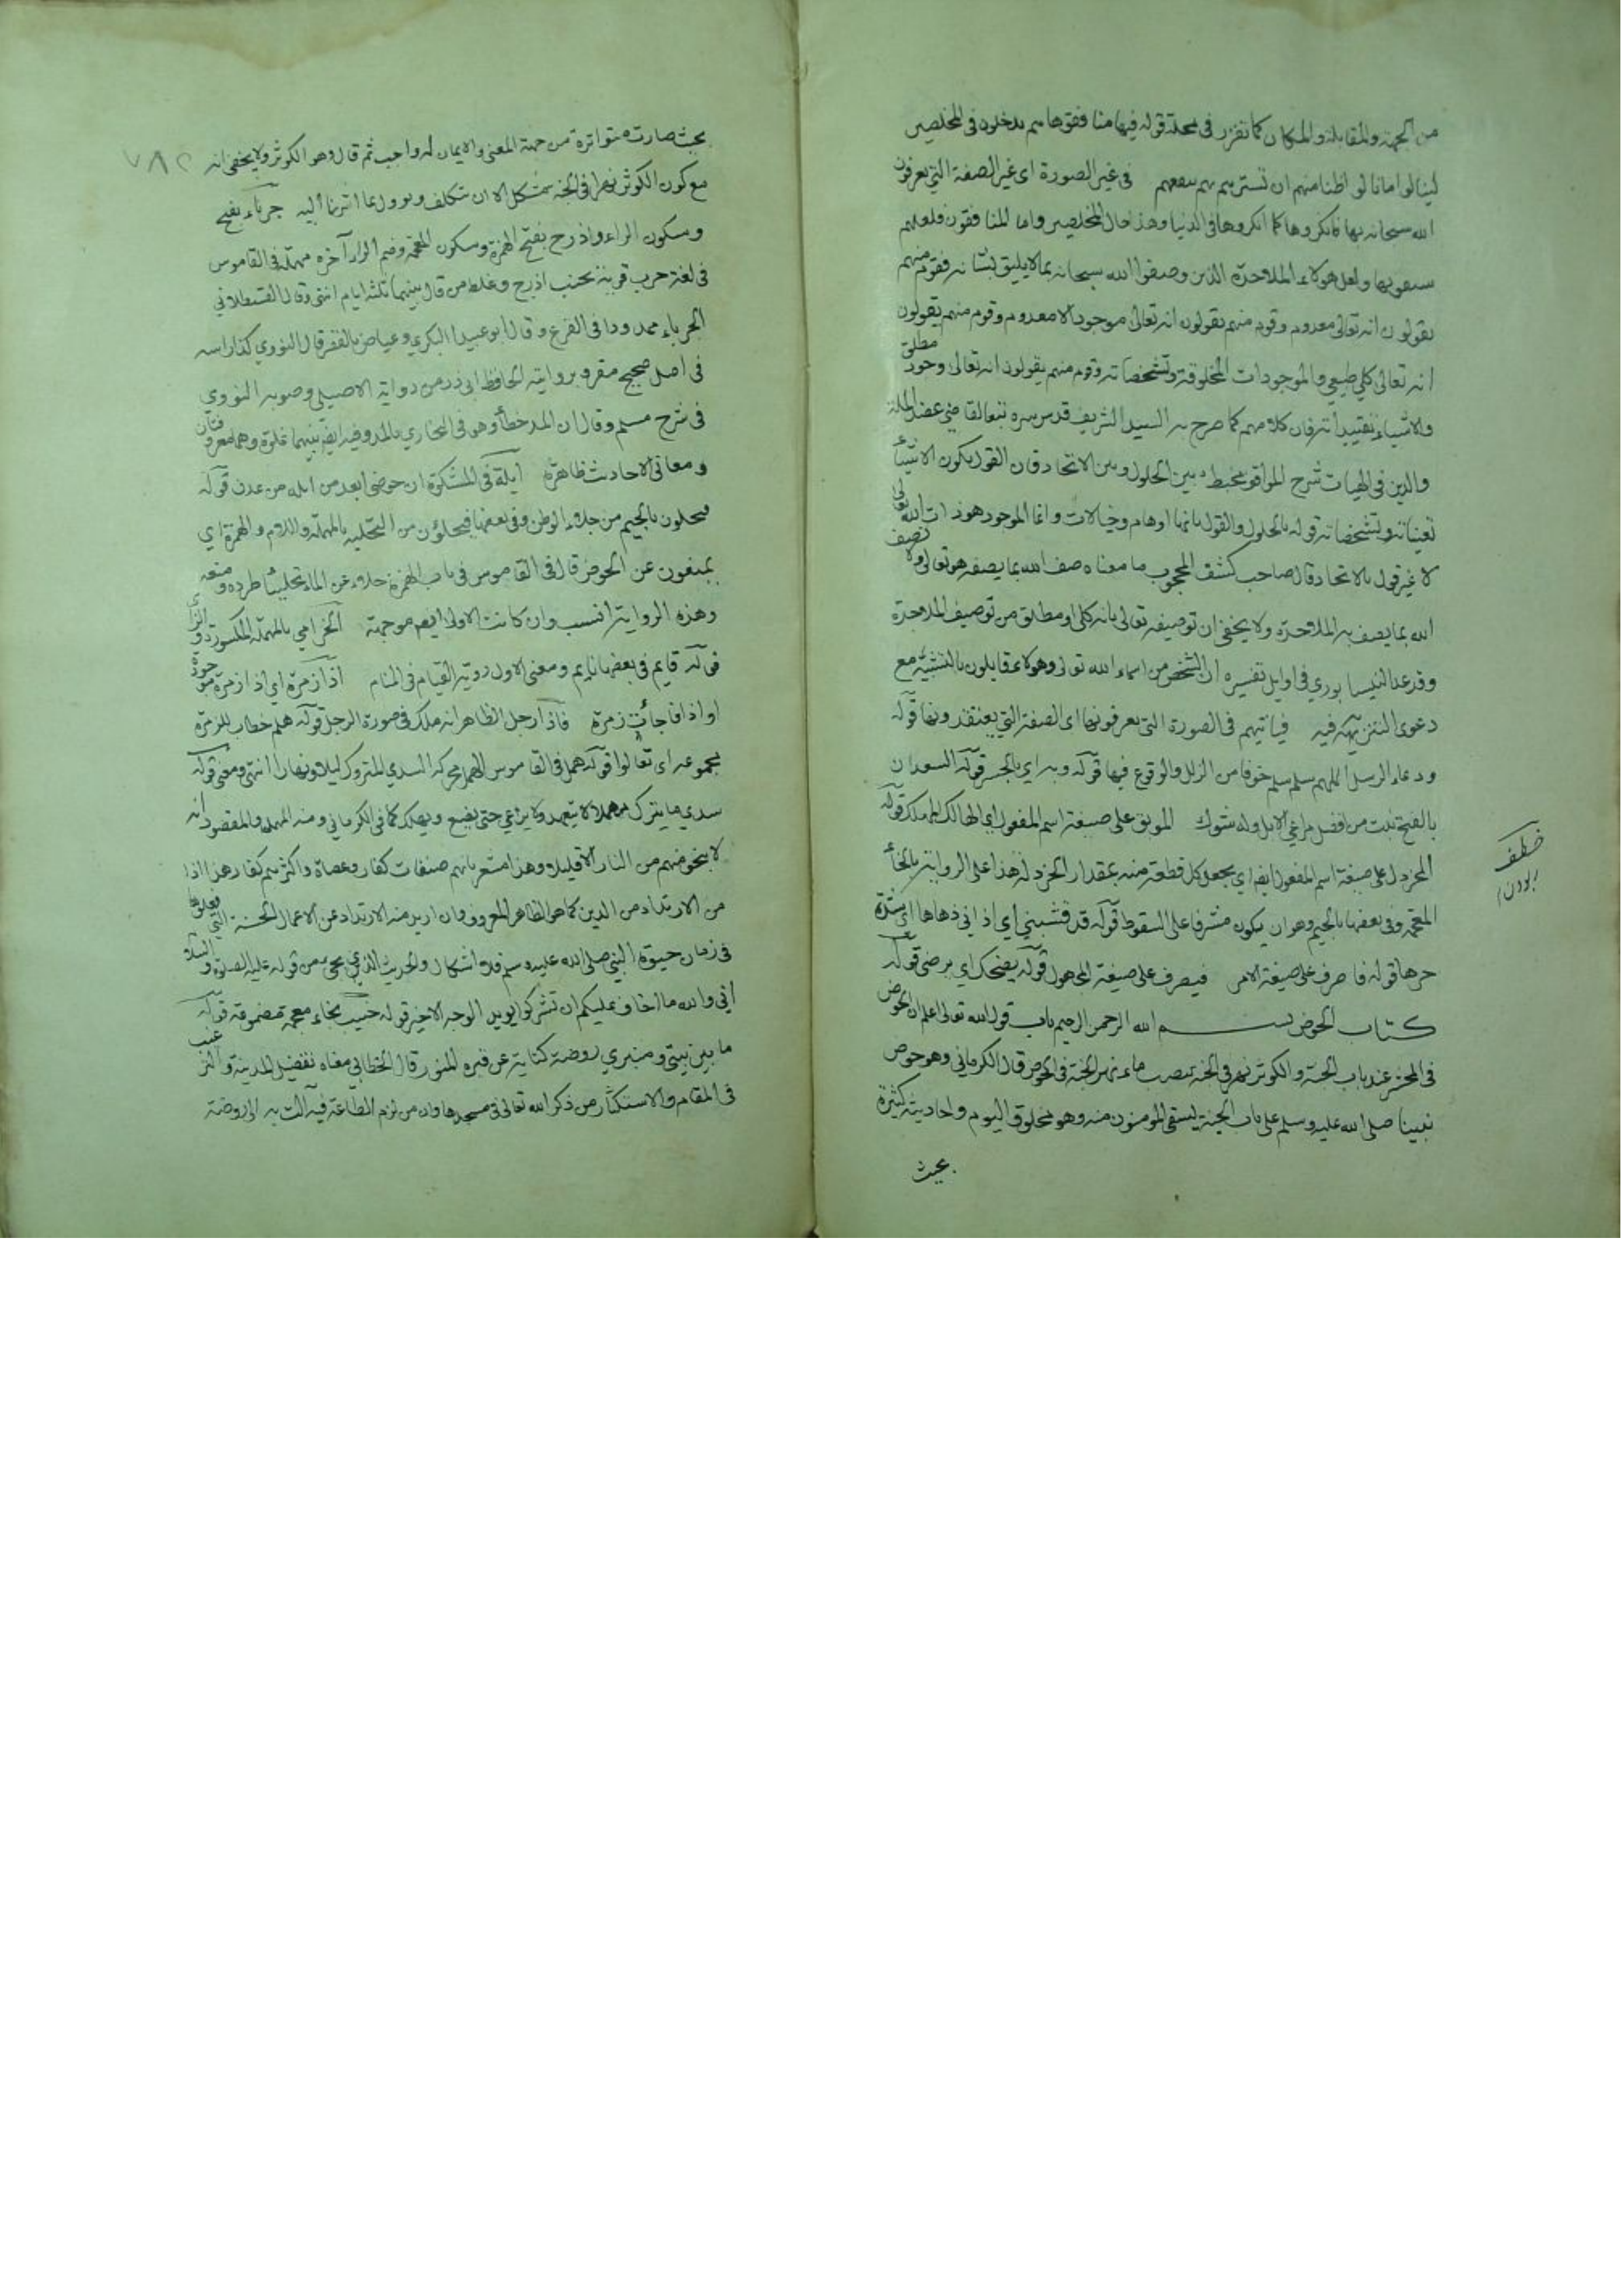 من الجهة والمقابلة والمكان كما تقرر في محله قوله فيها منافقوها هم يدخلون في المخلصين
لينالوا امانا لو اظنا منهم ان تسترهم بهم ينفعهم في غير الصورة اى غير الصفة التي يعرفون
الله سبحانه بها فانكروها كما انكروها في الدنيا وهذا حال المخلصين واما المنافقون فلعلهم
ولعل هولاء الملاحدة الذين وصفوا الله سبحانه بما لا يليق بشانه فقوم منهم
يقولون انه تعالى معدوم وقوم منهم يقولون انه تعالى موجود لا معدوم وقوم منهم يقولون
انه تعالى كلي طبيعي والموجودات المخلوقة وتشخصاته وقوم منهم يقولون انه تعالى وجود مطلق
والاشياء تقييداته فان كلامهم كما صرح به السيد الشريف قدس سره تبعا لقاضي عضد الملة
والدين في الهيات شرح المواقف مخبط بين الحلول وبين الاتحاد فان القول بكون الاشياء
تعيناته وتشخصاته قوله بالحلول والقول بانها اوهام وخيالات وانما الموجود هو ذات الله تعالى
لا غير قول بالاتحاد قال صاحب كشف المحجوب ما معناه صف الله بما يصفه هو تعالى ولا تصف
الله بما يصف به الملاحدة ولا يخفى ان توصيفه تعالى بانه كلي او مطلق من توصيف الملاحدة
وقد عد النيسابوري في اوايل تفسيره ان الشخص من اسماء الله تعالى وهولاء قايلون بالتشبيه مع
دعوى التنزيه فيه فياتيهم في الصورة التي يعرفونها اى الصفة التي يعتقدونها قوله
ودعاء الرسل اللهم سلم سلم خوفا من الزلل والوقوع فيها قوله وبه اي بالجسر قوله السعدان
بالفتح نبت من افضل مراعي الابل وله شوك الموبق على صيغة اسم المفعول اي الهالك قوله
المخردل على صيغة اسم المفعول ايضا اي يجعل كل قطعة منه بمقدار الخردلة هذا على الرواية بالخاء
المعجمة وفي بعضها بالجيم وهو ان يكون مشرفا على السقوط قوله قد قشبني اي اذاني ذكاها اى شدة
حرها قوله فاصرف على صيغة الامر فيصرف على صيغة المجهول قوله يضحك اي يرضى قوله
كتاب الحوض بسم الله الرحمن الرحيم باب قول الله تعالى اعلم ان الحوض
في المحشر عند باب الجنة والكوثر نهر في الجنة يصب ماء نهر الجنة في الحوض قال الكرماني وهو حوض
نبينا صلى الله عليه وسلم على باب الجنة يسقى المؤمنون منه وهو مخلوق اليوم واحاديثه كثيرة
بحيث
خطف
ربودن
٧٨٢
بحيث صارت متواترة من جهة المعنى والايمان له واجب ثم قال وهو الكوثر ولا يخفى انه
مع كون الكوثر نهرا في الجنة مشكل الا ان يتكلف ويوول بما اشرنا اليه جرباء بفتح
وسكون الراء واذرح بفتح الهمزة وسكون المعجمة وضم الراء آخره مهملة في القاموس
في لغة جرب قرية بجنب اذرح وغلط من قال بينهما ثلثة ايام انتهى وقال القسطلاني
الجرباء ممدودا في الفرع وقال ابو عبيد البكري وعياض بالقصر قال النووي كذا راسه
في اصل صحيح مقرو برواية الحافظ ابي ذر من رواية الاصيلي وصوبه النووي
في شرح مسلم وقال ان المد خطأ وهو في البخاري بالمد وفيه ايضا بينهما غلوة وهما معروفتان
ومعاني الاحاديث ظاهرة ايلة في المشكوة ان حوضي ابعد من ايلة من عدن قوله
فيجلون بالجيم من جلاء الوطن وفي بعضها فيحلؤن من التحلية بالمهملة واللام والهمزة اي
يمنعون عن الحوض قال في القاموس في باب الهمزة حلاه عن الماء تحليئا طرده ومنعه
وهذه الرواية انسب وان كانت الاولى ايضا موجهة الحزامي بالمهملة المكسورة والزاي
قوله قايم في بعضها نايم ومعنى الاول رؤية القيام في المنام اذا زمرة اي اذا زمرة موجودة
او اذا فاجأت زمرة فاذا رجل الظاهر انه ملك في صورة الرجل قوله هلم خطاب للزمرة
بجموعه اى تعالوا قوله همل في القاموس الهمل محركة السدي المتروك ليلا ونهارا انتهى ومعنى قوله
سدي ما يترك مهملا لا يتعهد ولا يراعي حتى يضيع ويهلك كما في الكرماني ومنه المهمل والمقصود انه
لا ينجو منهم من النار الا قليلا وهذا مشعر بانهم صنفان كفار وعصاة واكثرهم كفار هذا اذا
من الارتداد من الدين كما هو الظاهر المعروف وان اريد منه الارتداد عن الاعمال الحسنة التي فعلوها
في زمان حيوة النبي صلى الله عليه وسلم فلا اشكال والحديث الذي يجيء من قوله عليه الصلوة والسلام
اني والله ما اخاف عليكم ان تشركوا يويد الوجه الاخير قوله خبيب بخاء معجمة مضمومة قوله
ما بين بيتي ومنبري روضة كناية عن قبره المنور قال الخطابي معناه تفضيل المدينة والترغيب
في المقام والاستكثار من ذكر الله تعالى في مسجدها وان من لزم الطاعة فيه آلت به الى روضة